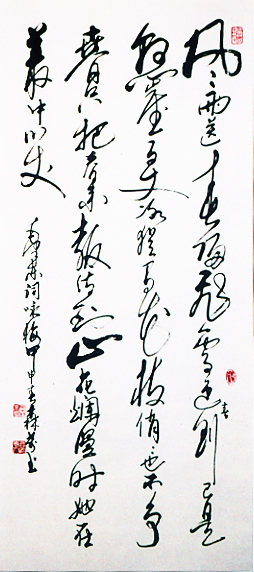 风雨送春归飞雪迎春到已是
悬崖百丈冰犹有花枝俏也不争
春只把春来報待到山花爛漫时她在
叢中笑
毛泽东詞咏梅甲申